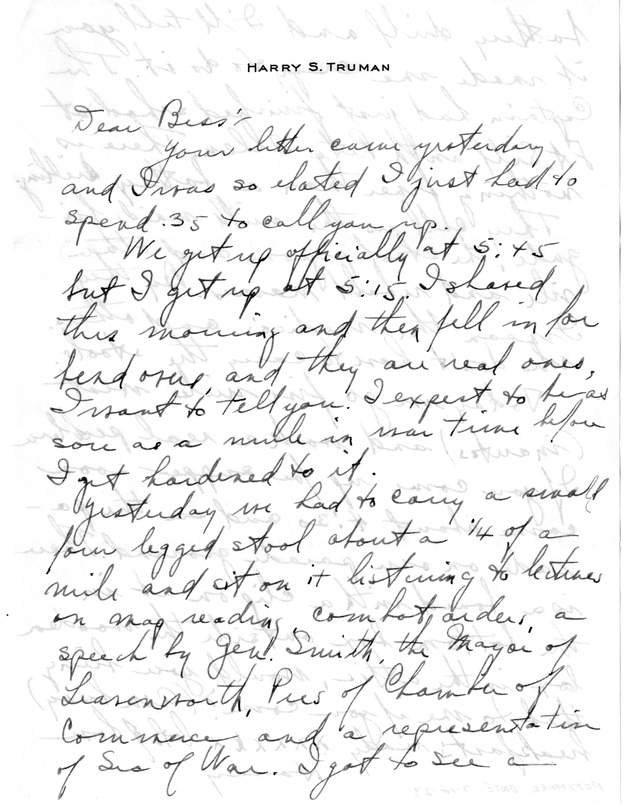 HARRY S. TRUMAN
Dear Bess:-
Your letter came yesterday
and I was so elated I just had to
spend .35 to call you up.
We get up officially at 5:45
but I get up at 5:15. I shaved
this morning and then fell in for
bend overs, and they are real ones,
I want to tell you. I expect to be as
sore as a mule in war time before
I get hardened to it.
Yesterday we had to carry a small
four legged stool about a 1/4 of a
mile and sit on it listening to lectures
on map reading, combat orders, a
speech by Gen. Smith, the Mayor of
Leavenworth, Pres of Chamber of
Commerce and a representative
of Sec of War. I got to see a